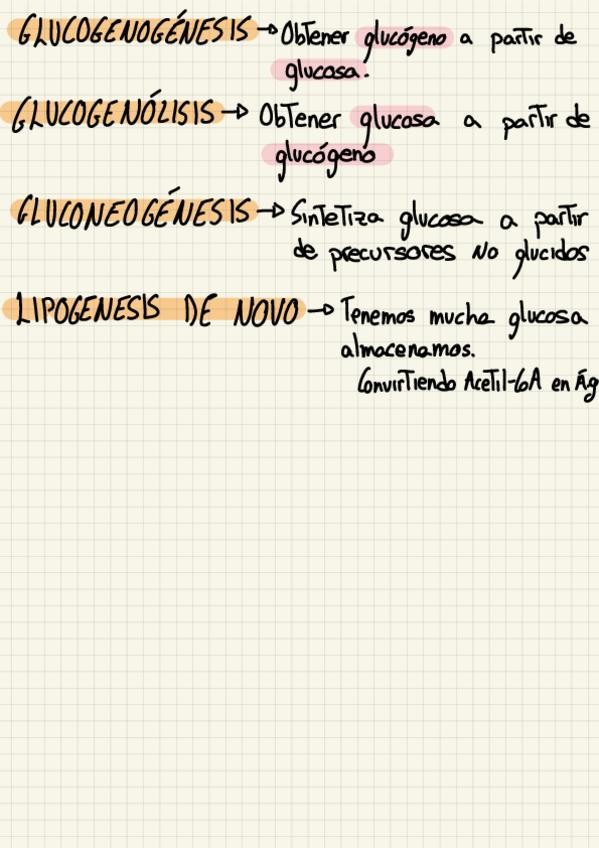 GLUCOGENOGÉNESIS → Obtener glucógeno a partir de
glucosa.
GLUCOGENÓLISIS → Obtener glucosa a partir de
glucógeno
GLUCONEOGÉNESIS → Sintetiza glucosa a partir
de precursores No glucidos
LIPOGENESIS DE NOVO → Tenemos mucha glucosa
almacenamos.
Convirtiendo Acetil-CoA en Ág